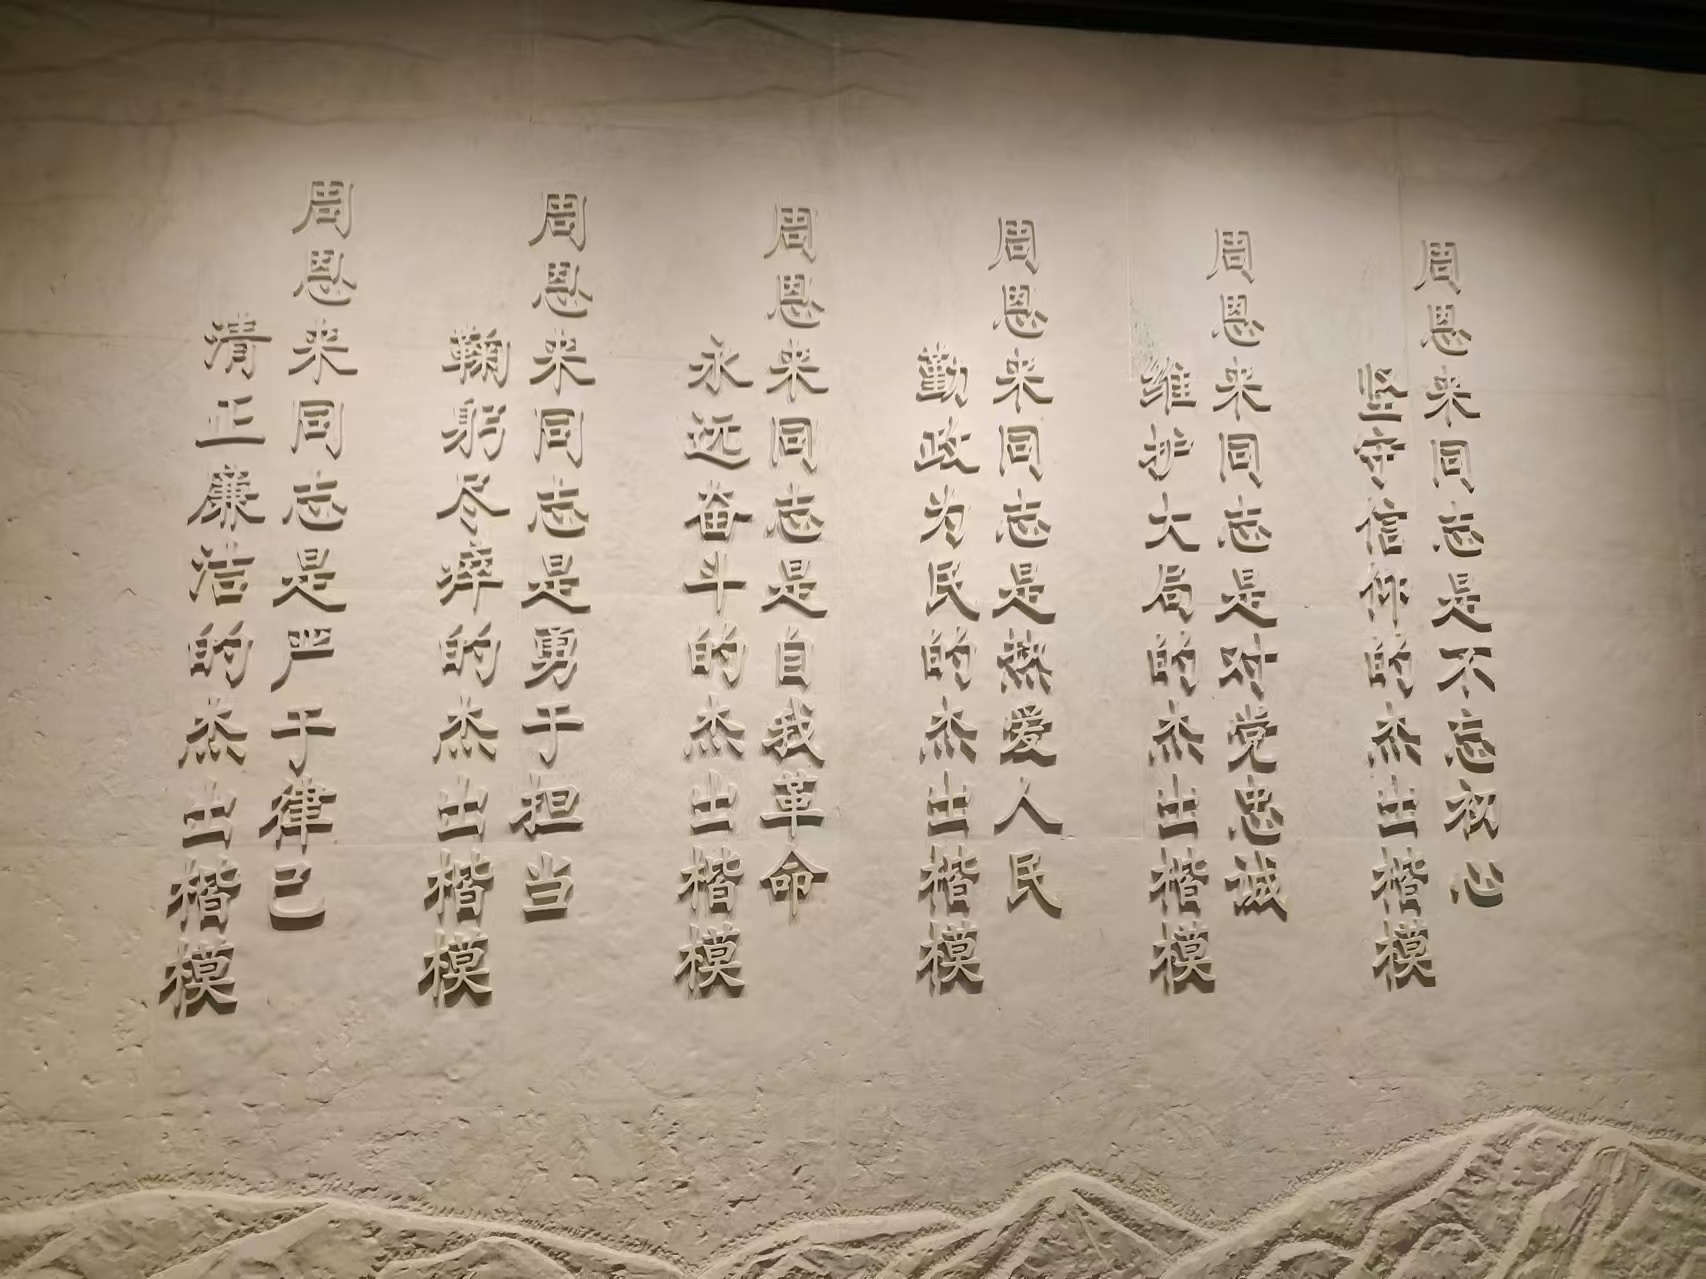 周恩来同志是不忘初心
坚守信仰的杰出楷模
周恩来同志是对党忠诚
维护大局的杰出楷模
周恩来同志是热爱人民
勤政为民的杰出楷模
周恩来同志是自我革命
永远奋斗的杰出楷模
周恩来同志是勇于担当
鞠躬尽瘁的杰出楷模
周恩来同志是严于律己
清正廉洁的杰出楷模